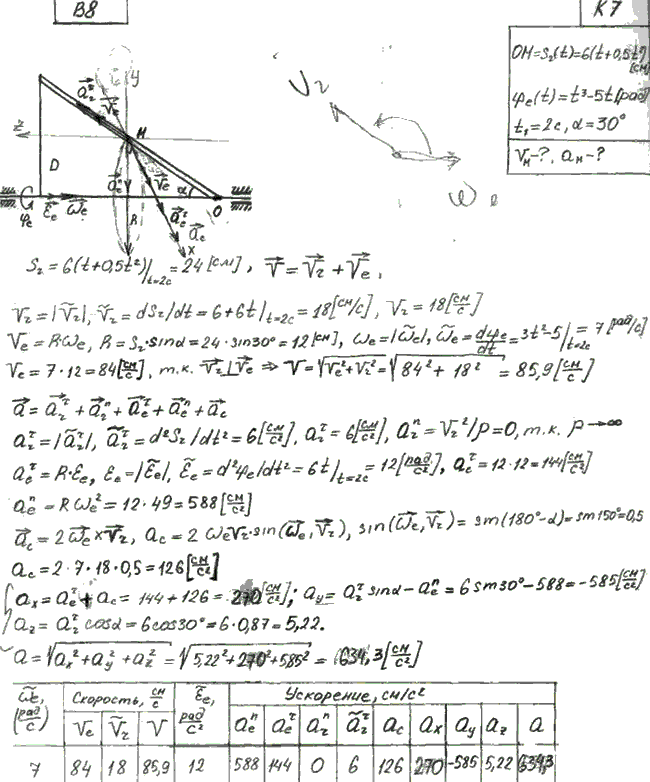 В8
К7
OM=S₂(t)=6(t+0,5t²) [см]
φe(t)=t³-5t [рад]
t₁=2c, α=30°
Vм-?, aм-?
y
z
M
D
R
α
O
x
φe
εe
ωe
Vr
ωe
Sr = 6(t+0,5t²)/t=2c = 24 [см], V̄=V̄r+V̄e,
Vr=|Ṽr|, Ṽr=dSr/dt=6+6t/t=2c=18[см/с], Vr=18[см/с]
Ve=Rωe, R=Sr·sinα=24·sin30°=12[см], ωe=|ω̃e|, ω̃e=dφe/dt=3t²-5/t=2c=7[рад/с]
Ve=7·12=84[см/с], т.к. V̄r⊥V̄e ⇒ V=√Ve²+Vr²=√84²+18²=85,9[см/с]
ā=ārτ+ārn+āeτ+āen+āc
arτ=|ãrτ|, ãrτ=d²Sr/dt²=6[см/с²], arτ=6[см/с²], arn=Vr²/ρ=0, т.к. ρ→∞
aeτ=R·εe, εe=|ε̃e|, ε̃e=d²φe/dt²=6t/t=2c=12[рад/с²], aeτ=12·12=144[см/с²]
aen=Rωe²=12·49=588[см/с²]
āc=2ω̄e×V̄r, ac=2ωeVr·sin(ω̄e,V̄r), sin(ω̄e,V̄r)=sin(180°-α)=sin150°=0,5
ac=2·7·18·0,5=126[см/с²]
ax=aeτ+ac=144+126=270[см/с²]; ay=arτsinα-aen=6sin30°-588=-585[см/с²]
az=arτcosα=6cos30°=6·0,87=5,22.
a=√ax²+ay²+az²=√5,22²+270²+585²=634,3[см/с²]
ω̃e, [рад/с] Скорость, см/с ε̃e, рад/с² Ускорение, см/с²
Ve Ṽr V aen aeτ arn ãrτ ac ax ay az a
7 84 18 85,9 12 588 144 0 6 126 270 -585 5,22 634,3